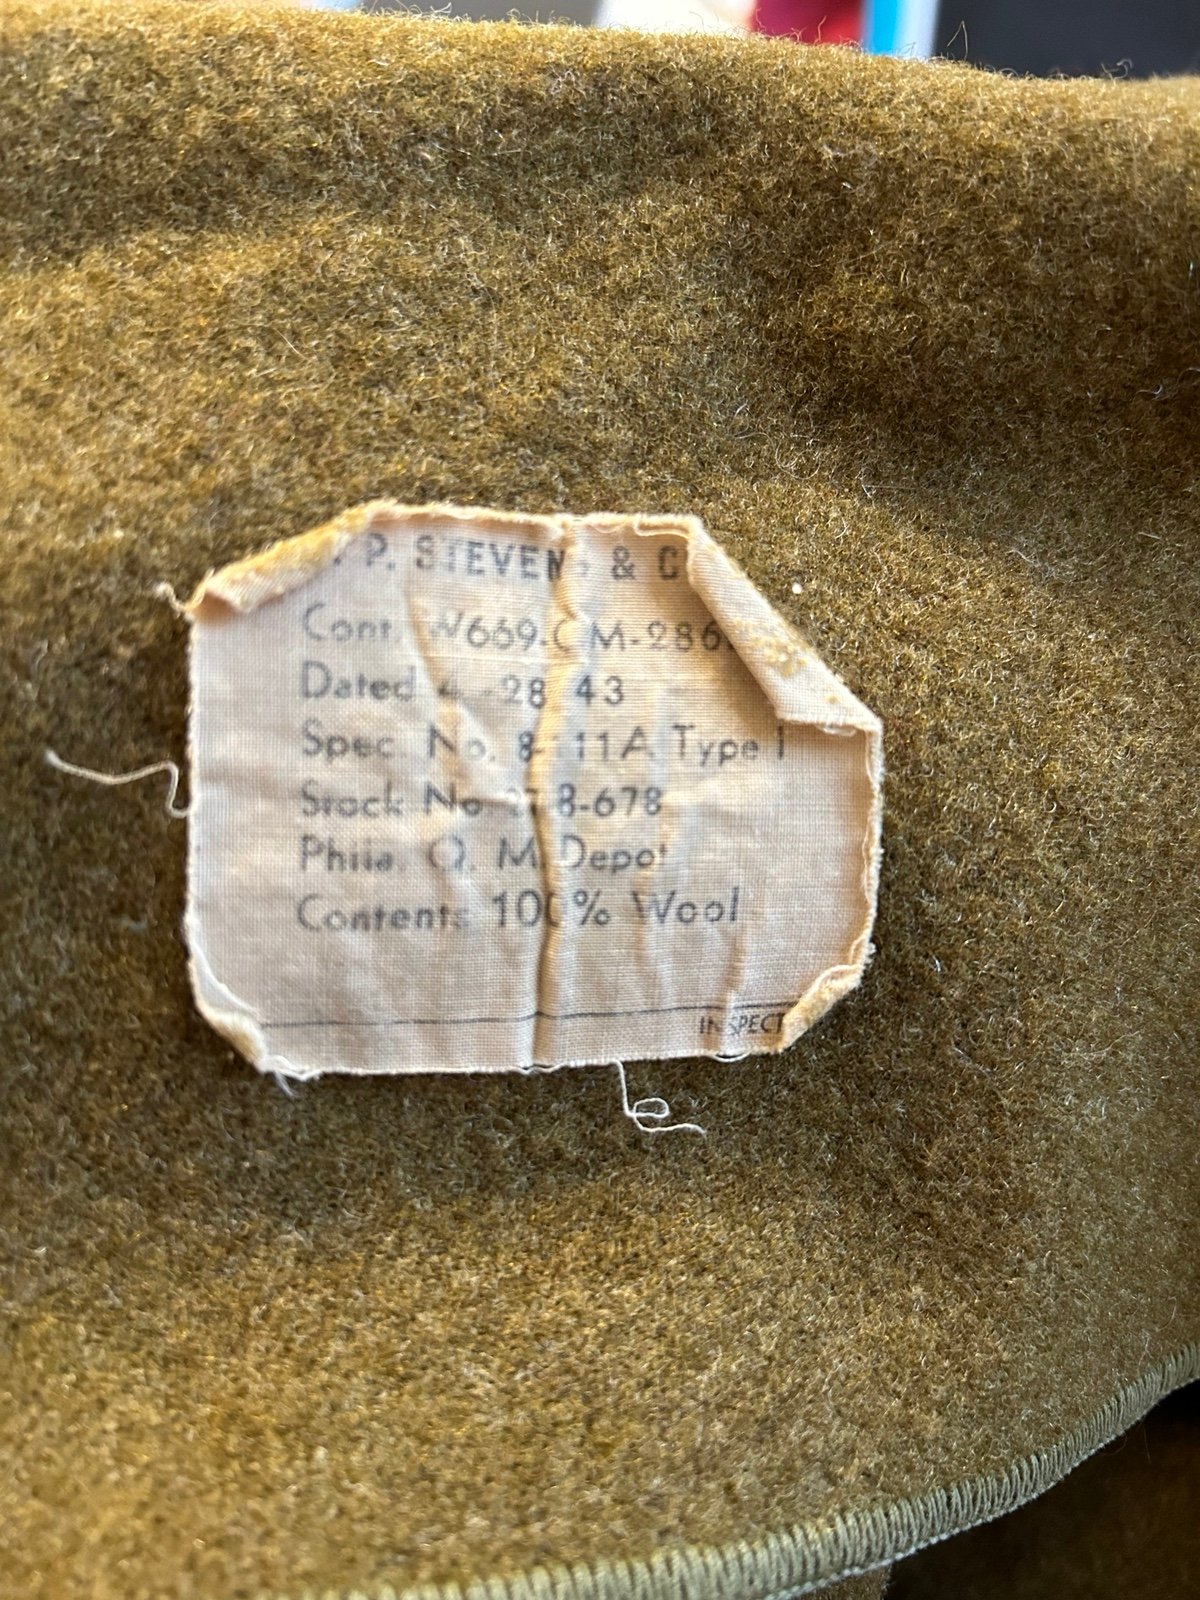 P. STEVENS & C
Cont. W669-QM-286
Dated 28 43
Spec. No. 8- 11A Type I
Stock No 8-678
Phila. Q. M. Depot
Contents 100% Wool
INSPECT